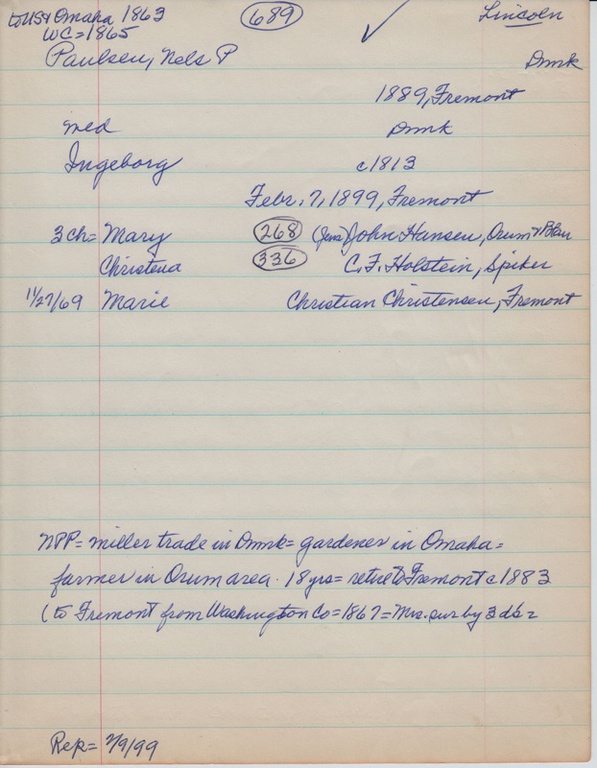 to US & Omaha 1863 (689) ✓ Lincoln
WC = 1865
Paulsen, Nels P Dnmk
1889, Fremont
wed Dnmk
Ingeborg c1813
Febr. 7, 1899, Fremont
3 ch = Mary (268) (Jens) John Hansen, Orum & Blair
Christena (336) C. F. Holstein, Spiker
11/27/69 Marie Christian Christensen, Fremont
NPP = miller trade in Dnmk = gardener in Omaha =
farmer in Orum area. 18 yrs = retire to Fremont c1883
(to Fremont from Washington Co = 1867 = Mrs. sur by 3 ds =
Rep = 2/9/99